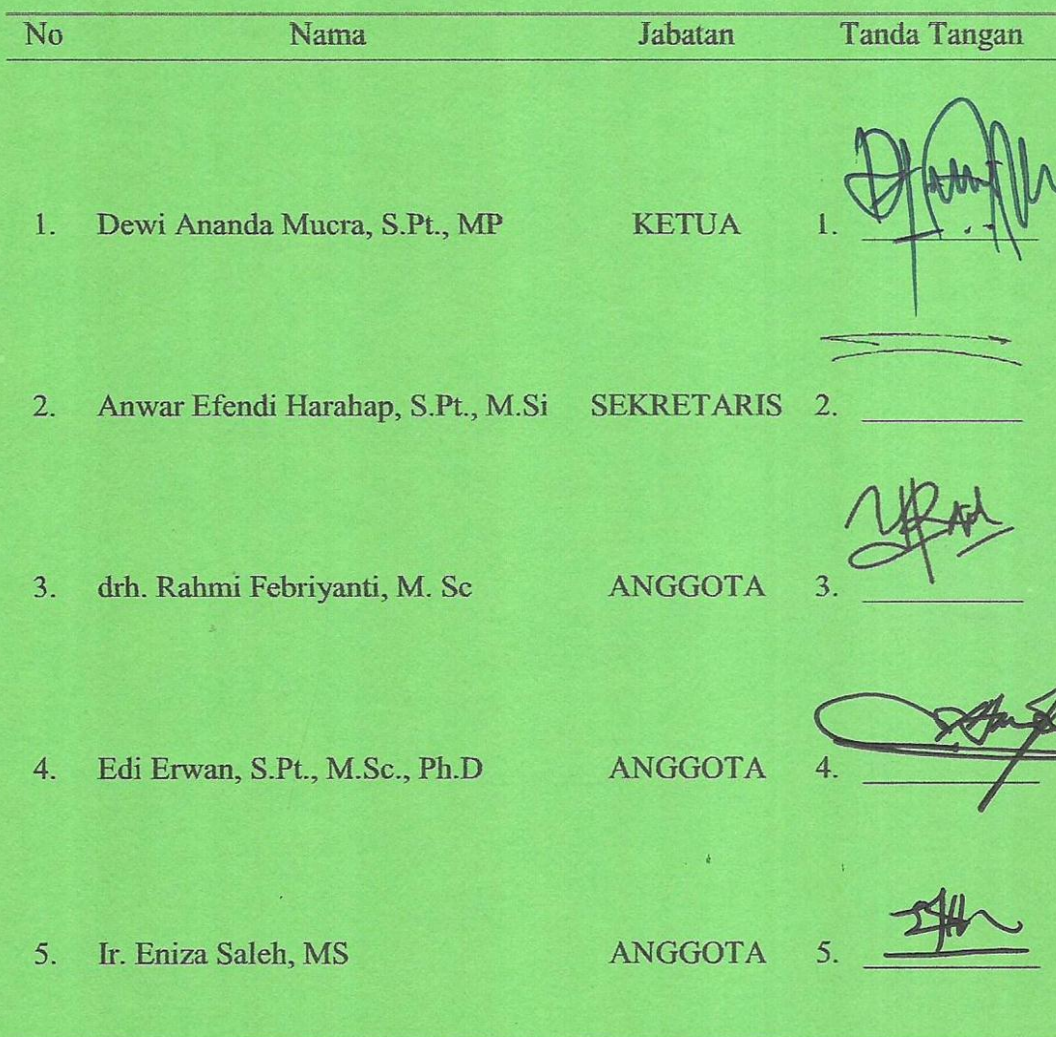 No Nama Jabatan Tanda Tangan
1. Dewi Ananda Mucra, S.Pt., MP KETUA 1.
2. Anwar Efendi Harahap, S.Pt., M.Si SEKRETARIS 2.
3. drh. Rahmi Febriyanti, M. Sc ANGGOTA 3.
4. Edi Erwan, S.Pt., M.Sc., Ph.D ANGGOTA 4.
5. Ir. Eniza Saleh, MS ANGGOTA 5.